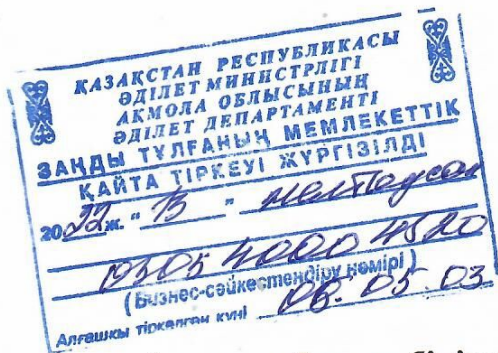 ҚАЗАҚСТАН РЕСПУБЛИКАСЫ
ӘДІЛЕТ МИНИСТРЛІГІ
АҚМОЛА ОБЛЫСЫНЫҢ
ӘДІЛЕТ ДЕПАРТАМЕНТІ
ЗАҢДЫ ТҰЛҒАНЫҢ МЕМЛЕКЕТТІК
ҚАЙТА ТІРКЕУІ ЖҮРГІЗІЛДІ
2022ж. "13" желтоқсан
0305 4000 4520
(Бизнес-сәйкестендіру нөмірі)
Алғашқы тіркелген күні 06.05.03